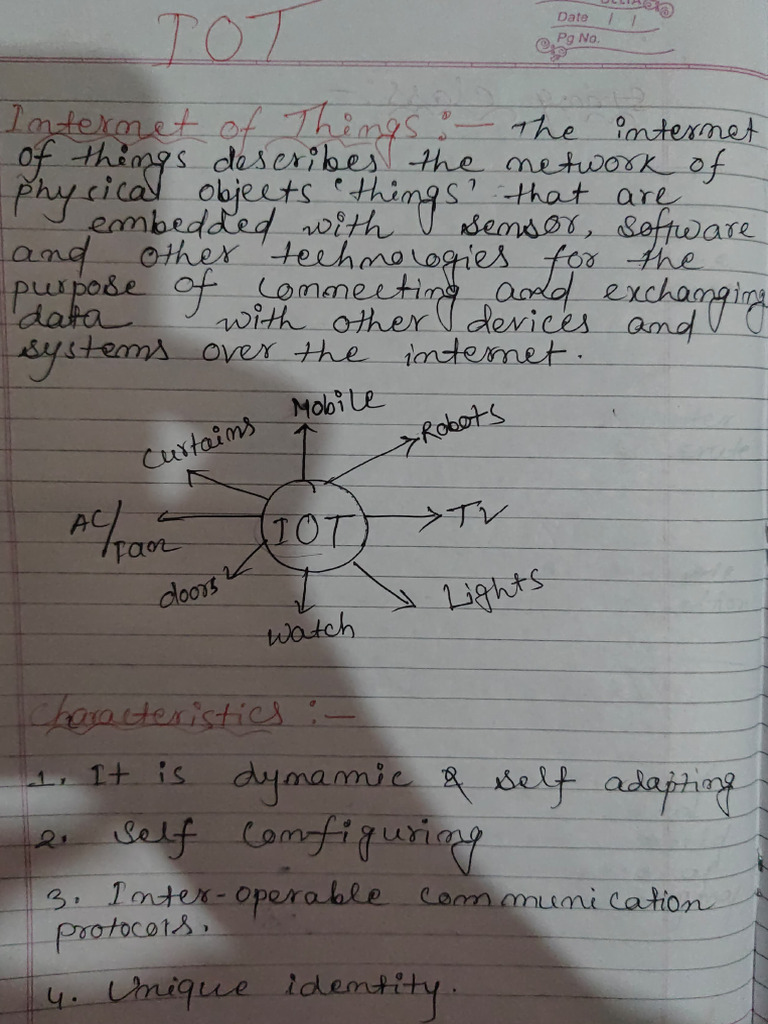 IOT
Date / /
Pg No.
Internet of Things :- The internet
of things describes the network of
physical objects 'things' that are
embedded with sensor, software
and other technologies for the
purpose of connecting and exchanging
data with other devices and
systems over the internet.
Mobile
Robots
Curtains
AC/Fan
IOT
TV
doors
Lights
Watch
Characteristics :-
1. It is dynamic & self adapting
2. Self configuring
3. Inter-operable communication
protocols.
4. Unique identity.